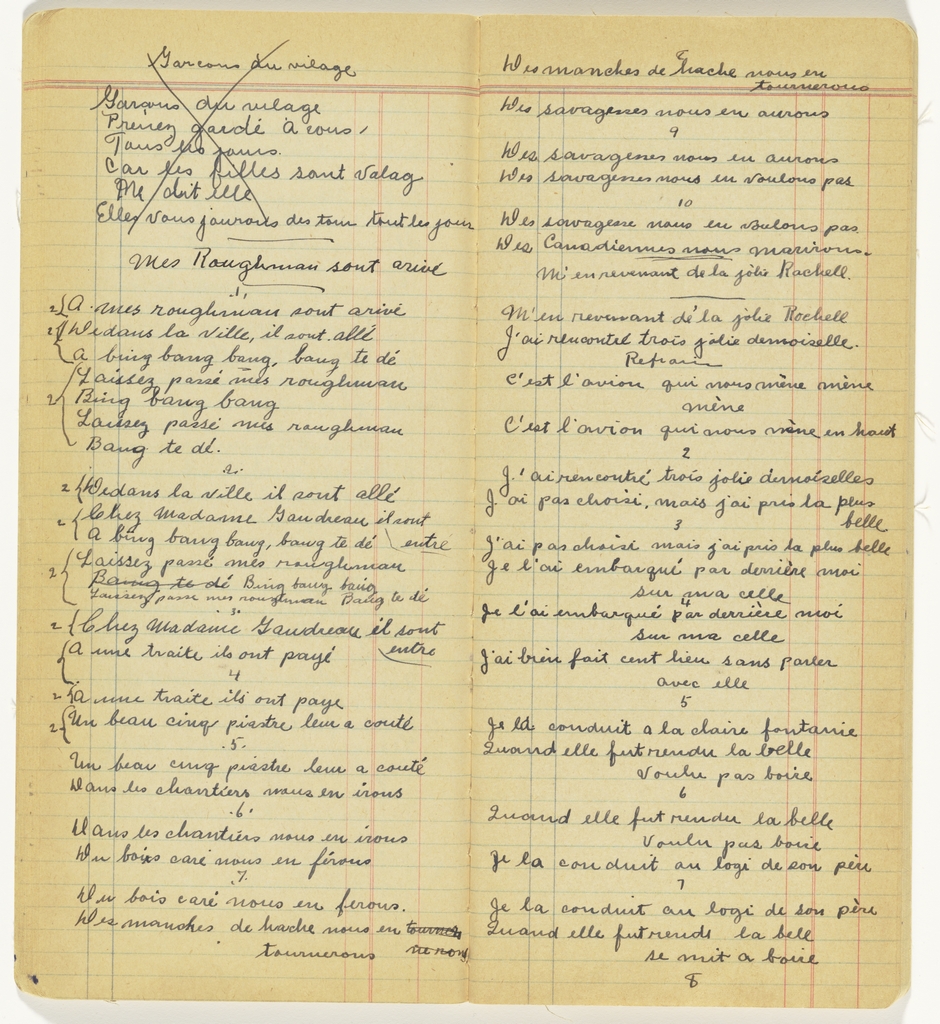 Garcons du vilage
Garcons du vilage
Prenez gardé à vous,
Tous les jours.
Car les filles sont valag
Me dit elle
Elles vous jourons des tour tout les jour
Mes Roughman sont arivé
1
2 { A mes roughman sont arivé
2 { Dedans la ville, il sont allé
A bing bang bang, bang te dé
2 { Laissez passé mes roughman
Bing bang bang
Laissez passé mes roughman
Bang te dé.
2.
2 { Dedans la ville il sont allé
2 { Chez Madame Gaudreau il sont
entre
A bing bang bang, bang te dé
2 { Laissez passé mes roughman
Bang te dé Bing bang bang
Laissez passe mes roughman Bang te dé
3
2 { Chez Madame Gaudreau il sont
entre
A une traite ils ont payé
4
2 { A une traite ils ont paye
2 { Un beau cinq piastre leur a couté
.5.
Un beau cinq piastre leur a couté
Dans les chantiers nous en irons
.6.
Dans les chantiers nous en irons
Du bois caré nous en ferons
.7.
Du bois caré nous en ferons.
Des manches de hache nous en
tournerons
8
Des manches de hache nous en
tournerons
Des savagesses nous en aurons
9
Des savagesses nous en aurons
Des savagesses nous en voulons pas
10
Des savagesse nous en voulons pas
Des Canadiennes nous marirons.
M'en revenant de la jolie Rachell.
M'en revenant de la jolie Rochell
J'ai rencontel trois jolie demoiselle.
Refrain
C'est l'avion qui nous mène mène
mène
C'est l'avion qui nous mène en haut
2
J'ai rencontré trois jolie demoiselles
J'ai pas choisi, mais j'ai pris la plus
belle
3
J'ai pas choisi mais j'ai pris la plus belle
Je l'ai embarqué par derrière moi
sur ma celle
4
Je l'ai embarqué par derrière moi
sur ma celle
J'ai bien fait cent lieu sans parler
avec elle
5
Je la conduit a la claire fontaine
Quand elle fut rendu la belle
voulu pas boire
6
Quand elle fut rendu la belle
voulu pas boire
Je la conduit au logi de son père
7
Je la conduit au logi de son père
Quand elle fut rendi la bell
se mit a boire
8